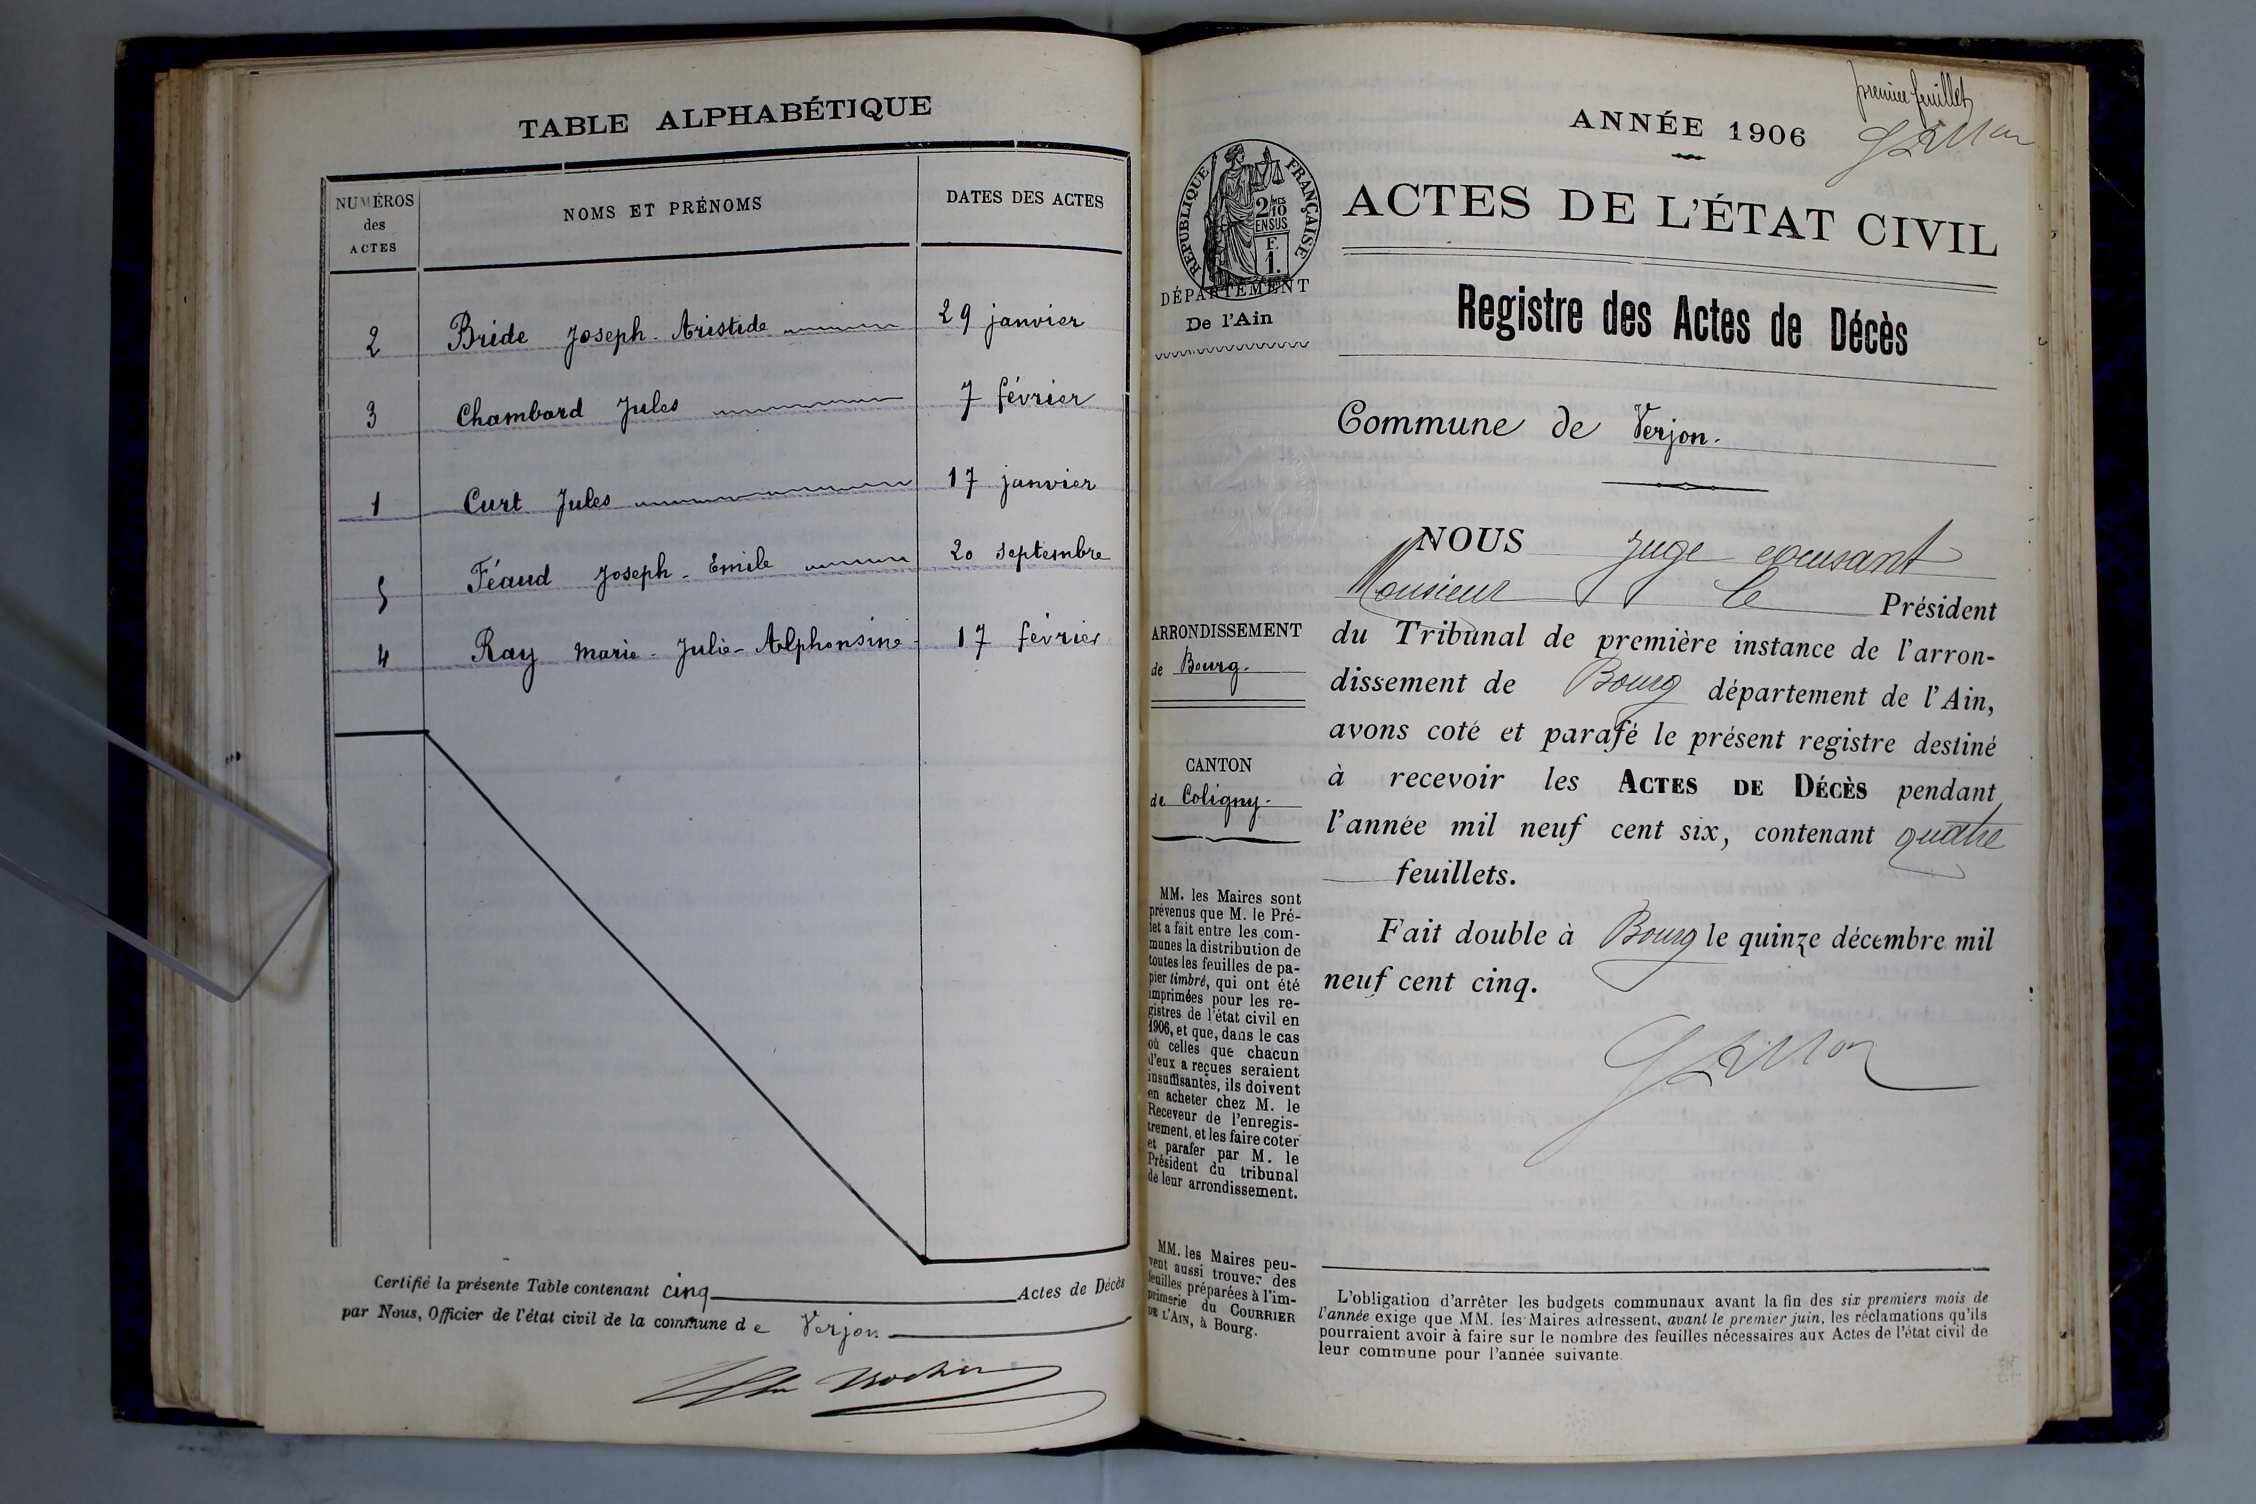 TABLE ALPHABÉTIQUE
NUMÉROS
des
ACTES
NOMS ET PRÉNOMS
DATES DES ACTES
2 Bride Joseph-Aristide 29 janvier
3 Chambard Jules 7 février
1 Curt Jules 17 janvier
5 Féaud Joseph-Emile 20 septembre
4 Ray Marie-Julie-Alphonsine 17 février
Certifié la présente Table contenant cinq Actes de Décès
par Nous, Officier de l'état civil de la commune de Verjon
premier feuillet
ANNÉE 1906
REPUBLIQUE FRANÇAISE
2/10
EN SUS
F.
1.
DÉPARTEMENT
De l'Ain
ACTES DE L'ÉTAT CIVIL
Registre des Actes de Décès
Commune de Verjon.
ARRONDISSEMENT
de Bourg.
CANTON
de Coligny.
MM. les Maires sont
prévenus que M. le Pré-
fet a fait entre les com-
munes la distribution de
toutes les feuilles de pa-
pier timbré, qui ont été
imprimées pour les re-
gistres de l'état civil en
1906, et que, dans le cas
où celles que chacun
d'eux a reçues seraient
insuffisantes, ils doivent
en acheter chez M. le
Receveur de l'enregis-
trement, et les faire coter
et parafer par M. le
Président du tribunal
de leur arrondissement.
MM. les Maires peu-
vent aussi trouver des
feuilles préparées à l'im-
primerie du COURRIER
DE L'AIN, à Bourg.
NOUS Juge
Monsieur le Président
du Tribunal de première instance de l'arron-
dissement de Bourg département de l'Ain,
avons coté et parafé le présent registre destiné
à recevoir les ACTES DE DÉCÈS pendant
l'année mil neuf cent six, contenant quatre
feuillets.
Fait double à Bourg le quinze décembre mil
neuf cent cinq.
L'obligation d'arrêter les budgets communaux avant la fin des six premiers mois de
l'année exige que MM. les Maires adressent, avant le premier juin, les réclamations qu'ils
pourraient avoir à faire sur le nombre des feuilles nécessaires aux Actes de l'état civil de
leur commune pour l'année suivante.